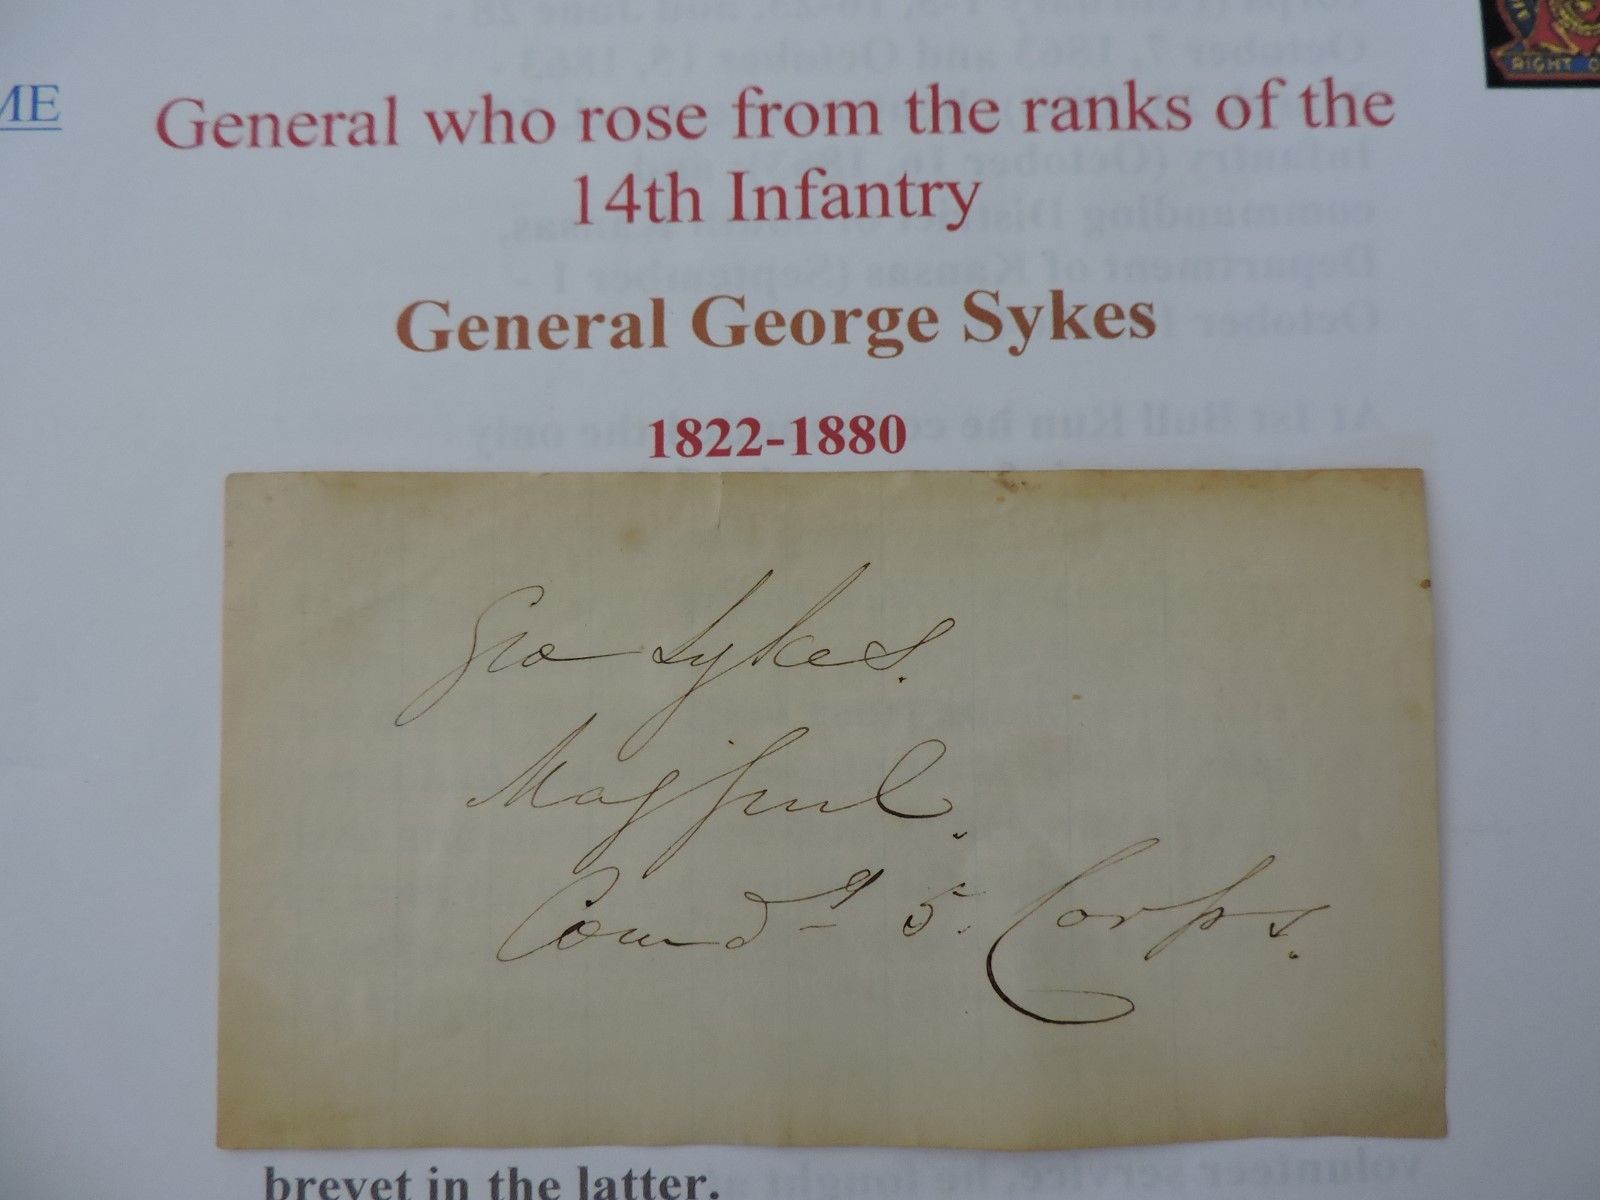 ME
RIGHT O
General who rose from the ranks of the
14th Infantry
General George Sykes
1822-1880
Geo Sykes.
Maj Genl.
Comdg 5. Corps.
brevet in the latter.